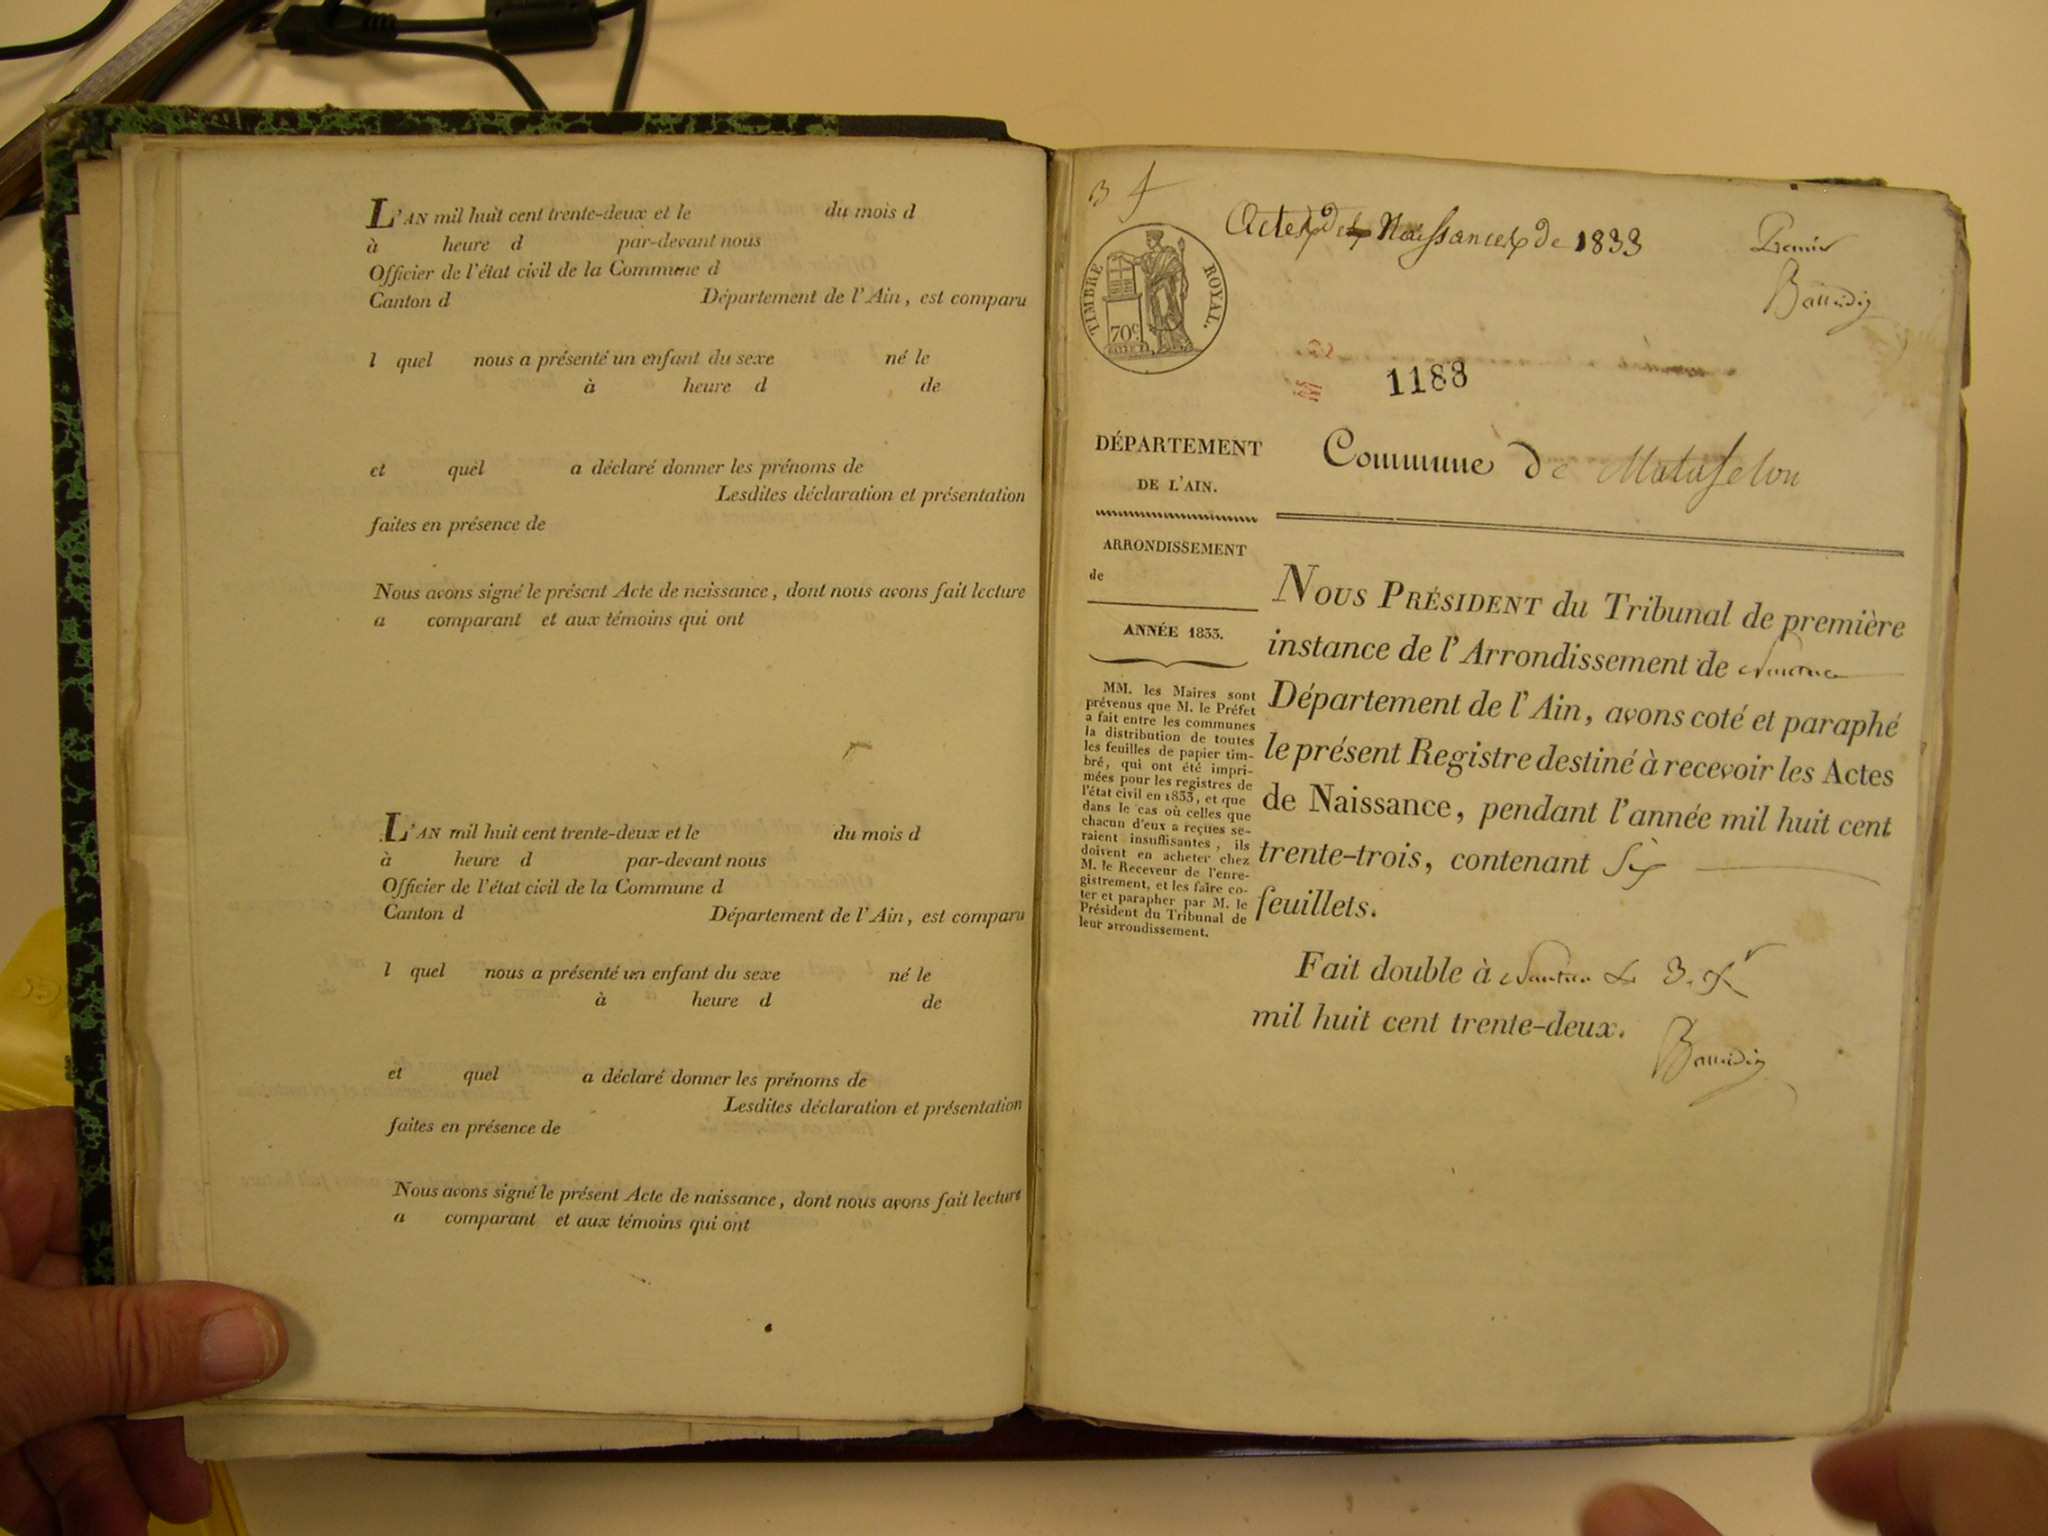 L'AN mil huit cent trente-deux et le du mois d
à heure d par-devant nous
Officier de l'état civil de la Commune d
Canton d Département de l'Ain, est comparu
l quel nous a présenté un enfant du sexe né le
à heure d de
et quel a déclaré donner les prénoms de
Lesdites déclaration et présentation
faites en présence de
Nous avons signé le présent Acte de naissance, dont nous avons fait lecture
a comparant et aux témoins qui ont
L'AN mil huit cent trente-deux et le du mois d
à heure d par-devant nous
Officier de l'état civil de la Commune d
Canton d Département de l'Ain, est comparu
l quel nous a présenté un enfant du sexe né le
à heure d de
et quel a déclaré donner les prénoms de
Lesdites déclaration et présentation
faites en présence de
Nous avons signé le présent Acte de naissance, dont nous avons fait lecture
a comparant et aux témoins qui ont
Actes de Naissances de 1833
Premier
TIMBRE ROYAL.
70c
1183
DÉPARTEMENT
DE L'AIN.
Commune de Matafelon
ARRONDISSEMENT
de
ANNÉE 1833.
MM. les Maires sont
prévenus que M. le Préfet
a fait entre les communes
la distribution de toutes
les feuilles de papier tim-
bré, qui ont été impri-
mées pour les registres de
l'état civil en 1833, et que
dans le cas où celles que
chacun d'eux a reçues se-
raient insuffisantes, ils
doivent en acheter chez
M. le Receveur de l'enre-
gistrement, et les faire co-
ter et parapher par M. le
Président du Tribunal de
leur arrondissement.
NOUS PRÉSIDENT du Tribunal de première
instance de l'Arrondissement de Nantua
Département de l'Ain, avons coté et paraphé
le présent Registre destiné à recevoir les Actes
de Naissance, pendant l'année mil huit cent
trente-trois, contenant Six
feuillets.
Fait double à Nantua le 3. Xr
mil huit cent trente-deux.